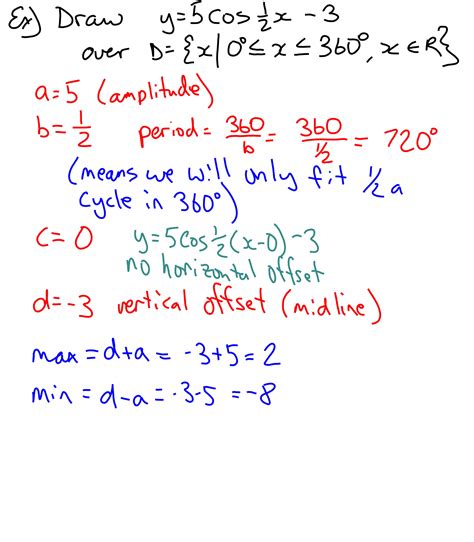 Ex) Draw y=5cos½x -3
over D= {x|0°≤x≤360°, x∈R}
a=5 (amplitude)
b=½ period= 360/b = 360/½ = 720°
(means we will only fit ½ a
cycle in 360°)
c=0 y=5cos½(x-0)-3
no horizontal offset
d=-3 vertical offset (midline)
max=d+a= -3+5=2
min = d-a= -3-5 =-8